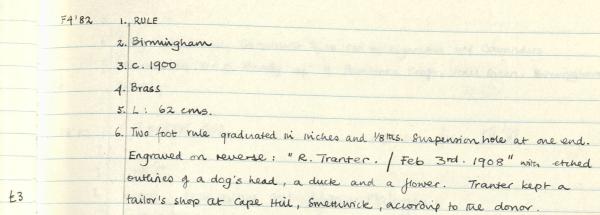 F4'82 1. RULE
2. Birmingham
3. c. 1900
4. Brass
5. L: 62 cms.
6. Two foot rule graduated in inches and 1/8ths. Suspension hole at one end.
Engraved on reverse: "R. Tranter. / Feb 3rd. 1908" with etched
outlines of a dog's head, a duck and a flower. Tranter kept a
£3 tailor's shop at Cape Hill, Smethwick, according to the donor.